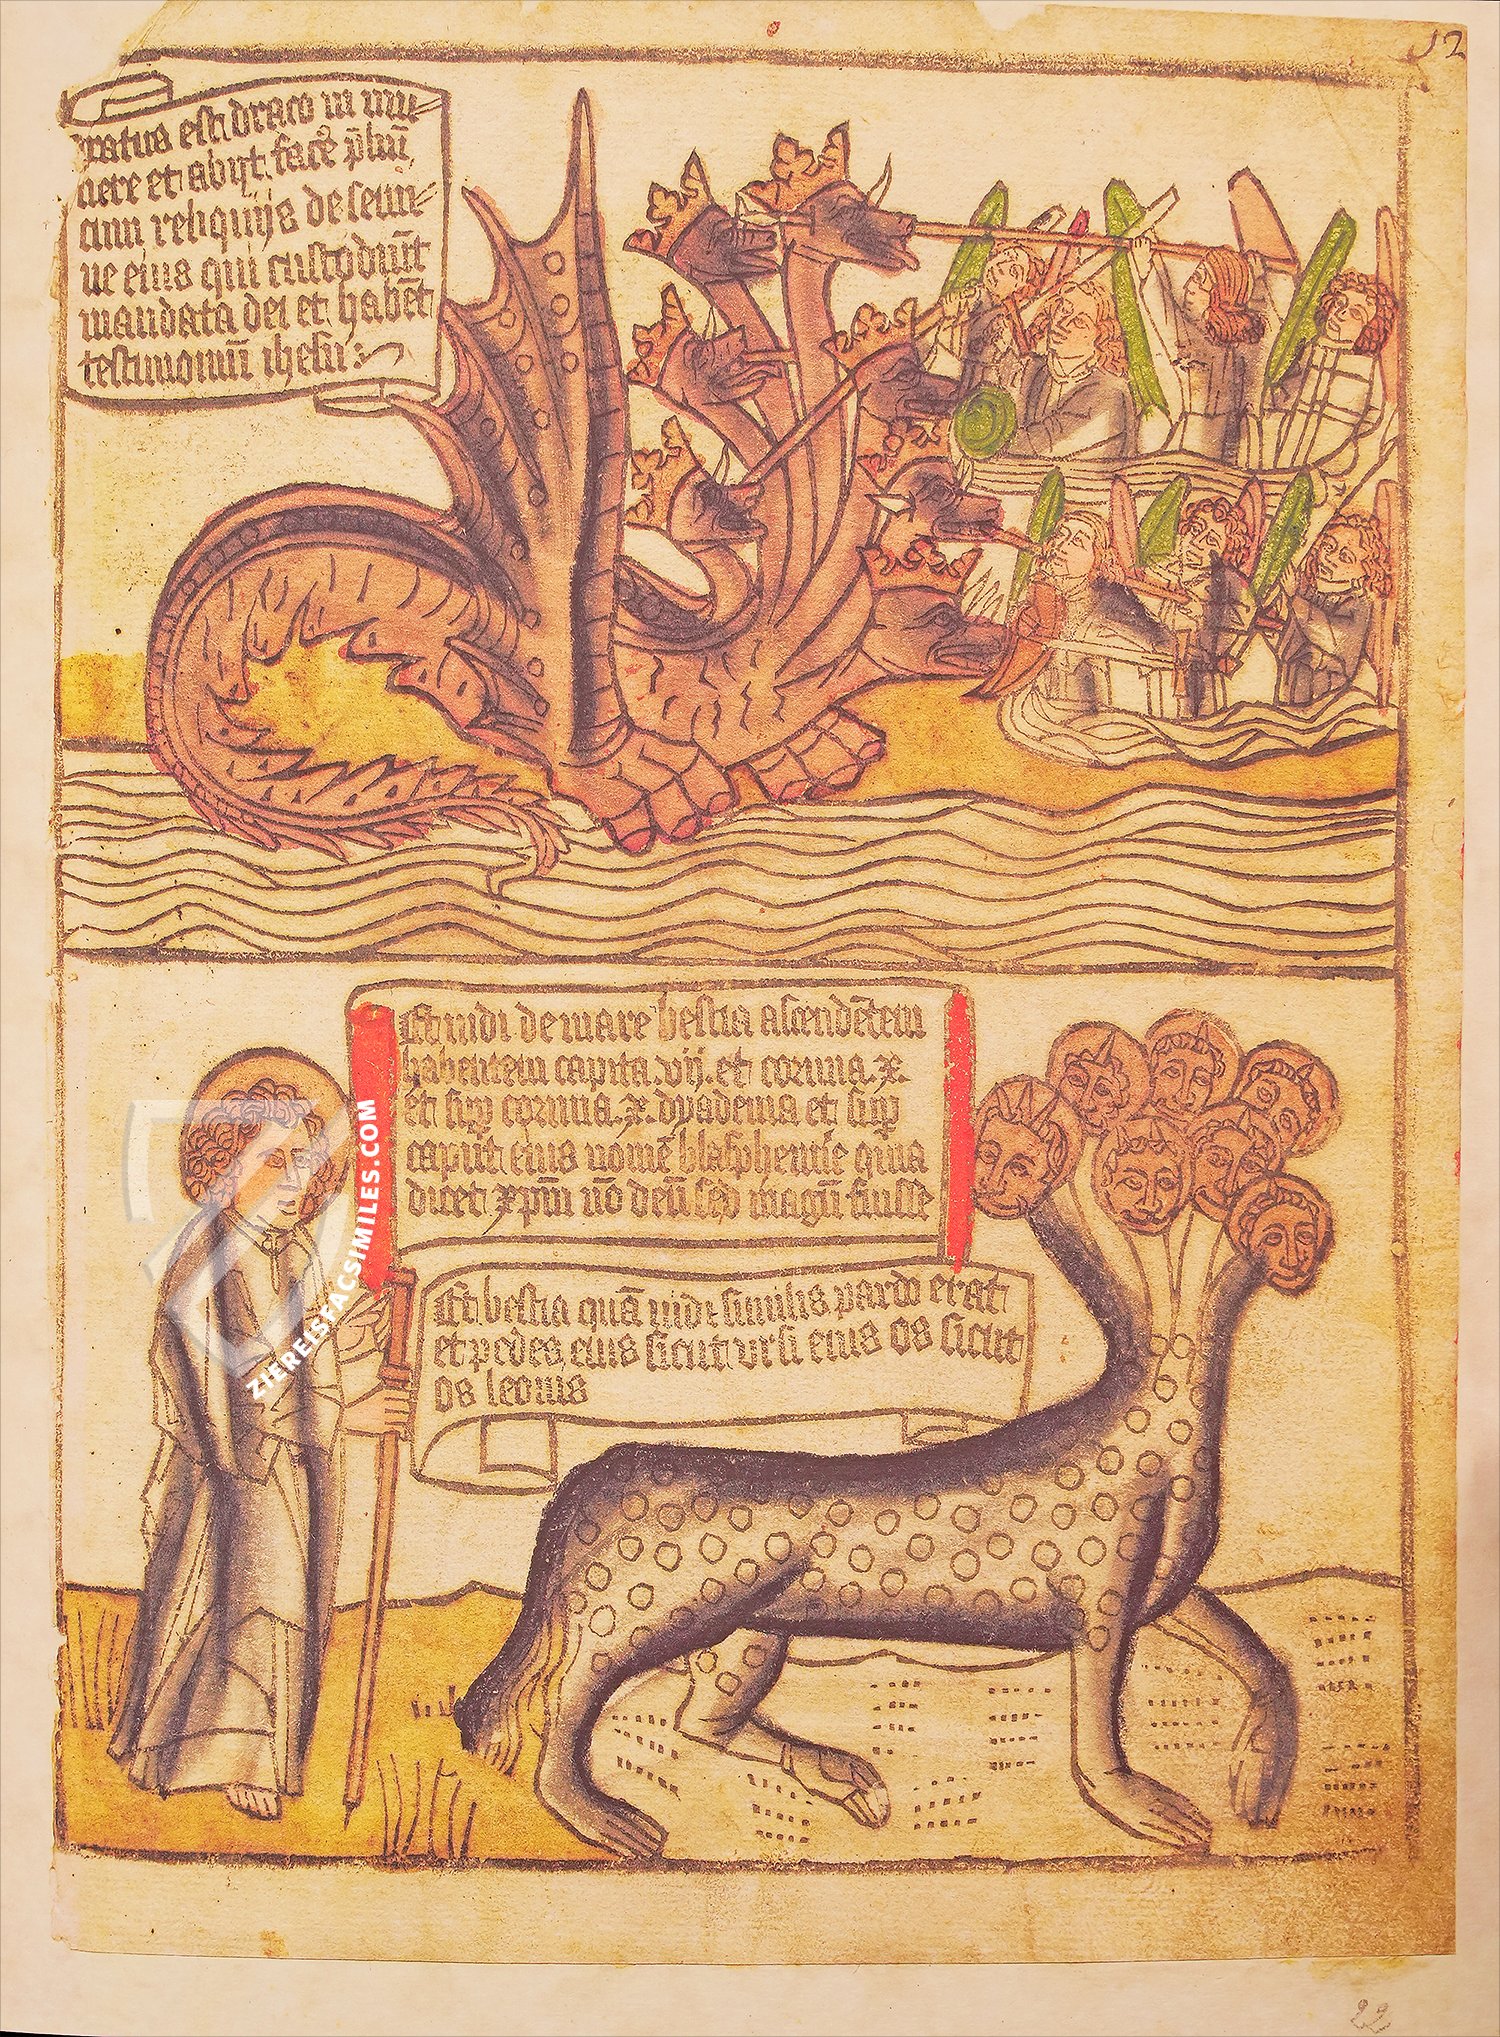 12
Iratus est draco in mu-
liere et abijt facē p̄liū
cum reliquijs de semi-
ne eius qui custodiūt
mandata dei et habēt
testimoniū ihesu:
Et vidi de mare bestiā ascendētem
habentem capita .vij. et cornua .x.
et sup cornua .x. dyadema et sup
caput eius nomē blasphemie quia
dicet xpm nō deū sed magū fuisse
Et bestia quā vidi similis pardo erat
et pedes eius sicut ursi eius os sicut
os leonis
ZIEREISFACSIMILES.COM
22